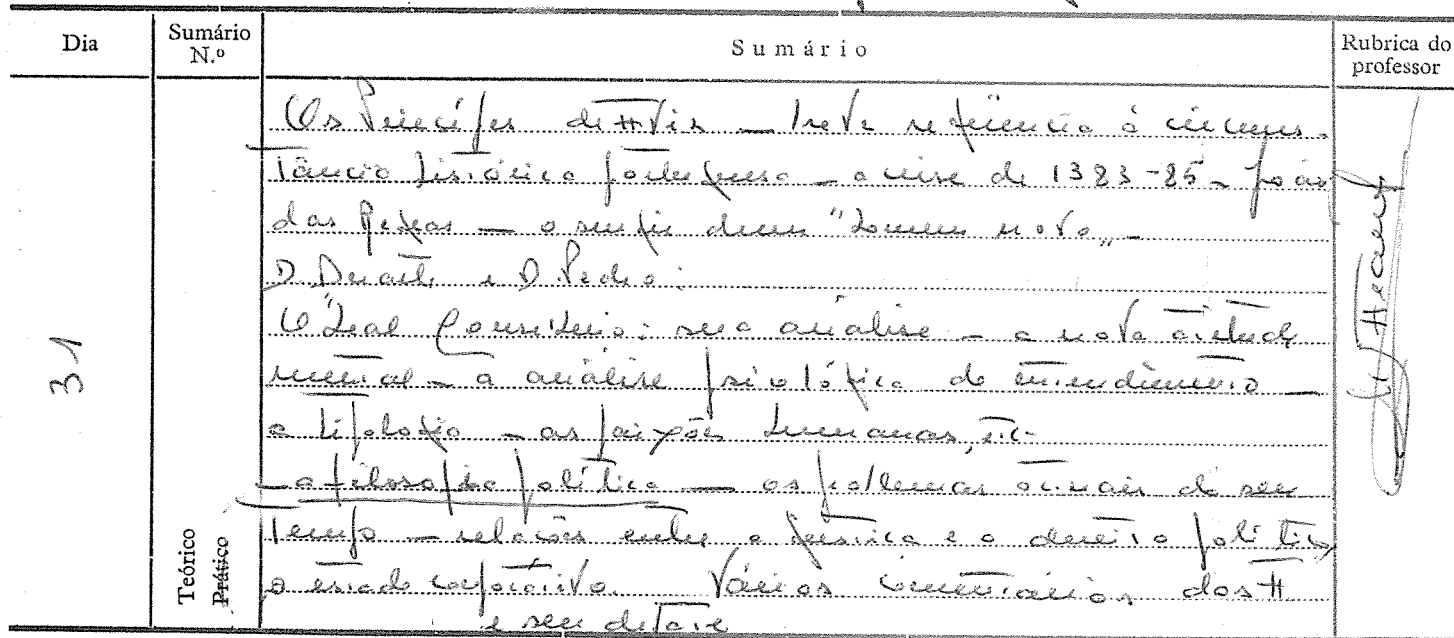 Dia
Sumário N.º
Sumário
Rubrica do professor
Os Príncipes de Avis — breve referência à circuns-
tância histórica portuguesa — a crise de 1383-85 — João
das Regras — o surgir dum "homem novo" —
D. Duarte e D. Pedro:
O "Leal Conselheiro: sua análise — a nova atitude
mental — a análise psicológica do entendimento —
a tipologia — as paixões humanas, etc-
— a filosofia política — os problemas sociais do seu
tempo — relações entre a justiça e o direito político
o estado corporativo. Vários comentários dos A
e seu debate
31
Teórico
Prático